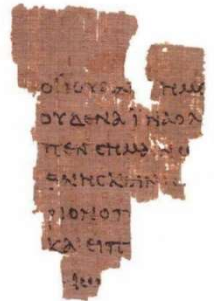 ΟΙΙΟΥΔΑΙ ΗΜ
ΟΥΔΕΝΑΙΝΑΟΛ
ΠΕΝCΗΜΑΙΝΩ
ΘΝΗCΚΕΙΝ
ΡΙΟΝΟΠ
ΚΑΙΕΙΠ